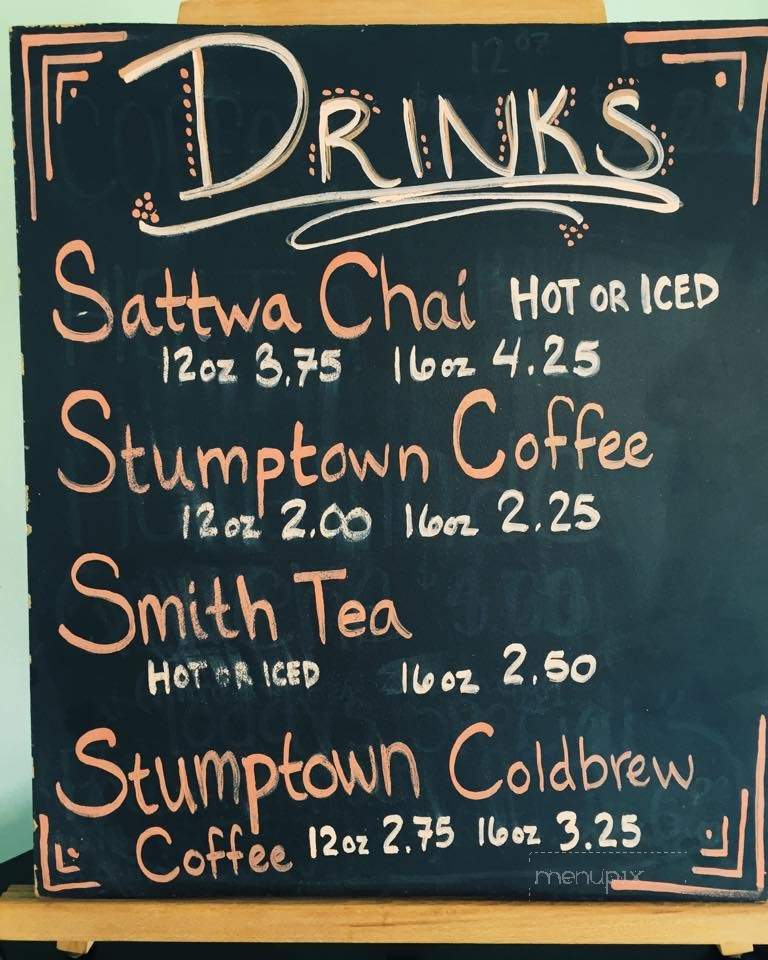 DRINKS
Sattwa Chai HOT OR ICED
12oz 3.75 16oz 4.25
Stumptown Coffee
12oz 2.00 16oz 2.25
Smith Tea
HOT OR ICED 16oz 2.50
Stumptown Coldbrew
Coffee 12oz 2.75 16oz 3.25
menupix